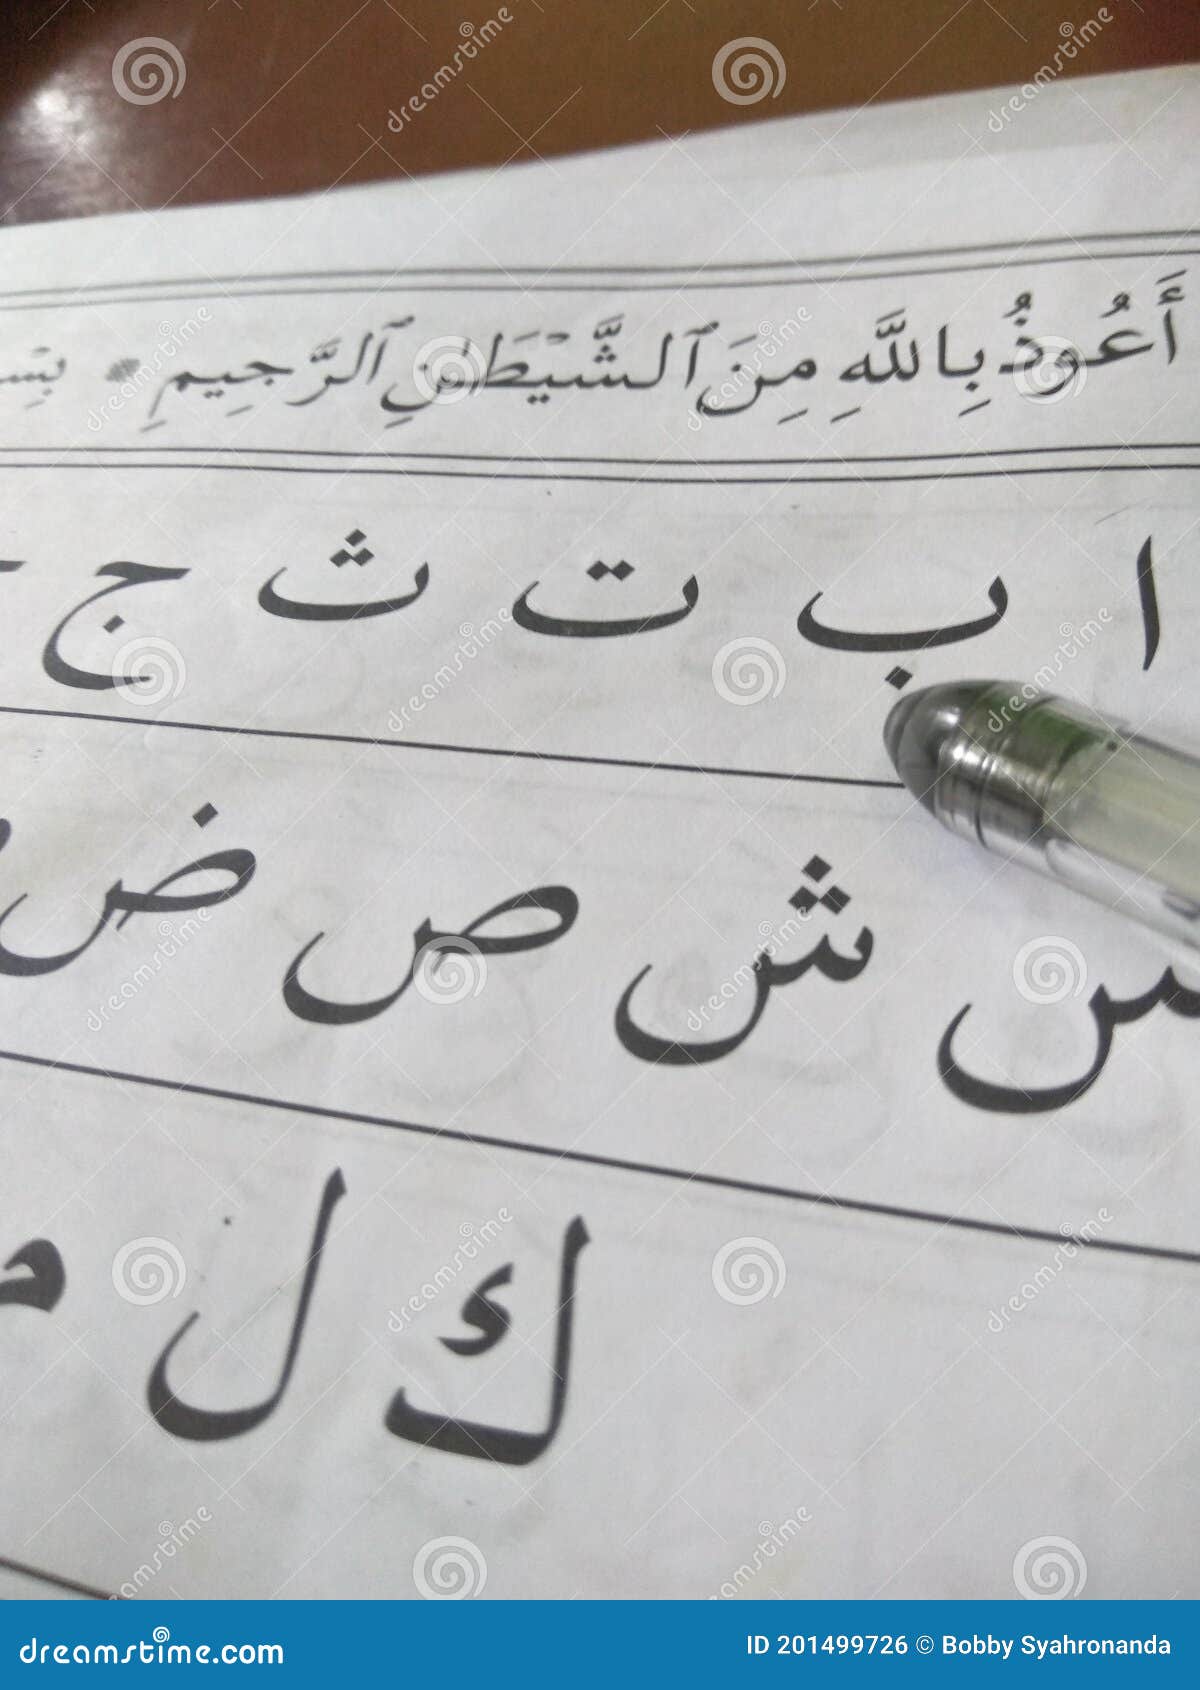 أَعُوذُ بِاللَّهِ مِنَ ٱلشَّيْطَٰنِ ٱلرَّجِيمِ
ا ب ت ث ج
س ش ص ض
ك ل م
dreamstime.com
ID 201499726 © Bobby Syahronanda